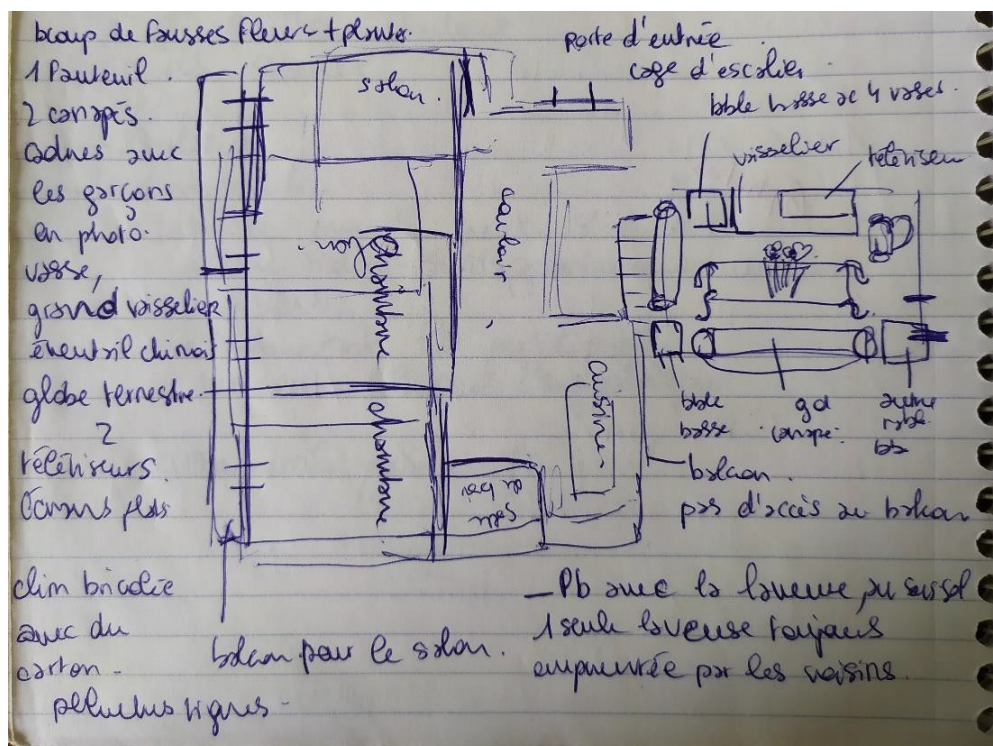 bcoup de fausses fleurs + plantes.
1 fauteuil.
2 canapés.
cadres avec
les garçons
en photo.
vasse,
grand vaisselier
éventail chinois
globe terrestre.
2
téléviseurs.
Écrans plats
clim bricolée
avec du
carton -
peluches tigres -
salon.
salon.
chambre
chambre
couloir
salle
de bain
cuisine
porte d'entrée
cage d'escalier.
tble basse ac 4 vases.
vaisselier
téléviseur
tble
basse
gd
canapé.
autre
table
bas
balcon.
pas d'accès au balcon
balcon pour le salon.
- Pb avec la laveuse au sussol
1 seule laveuse toujours
empruntée par les voisins.